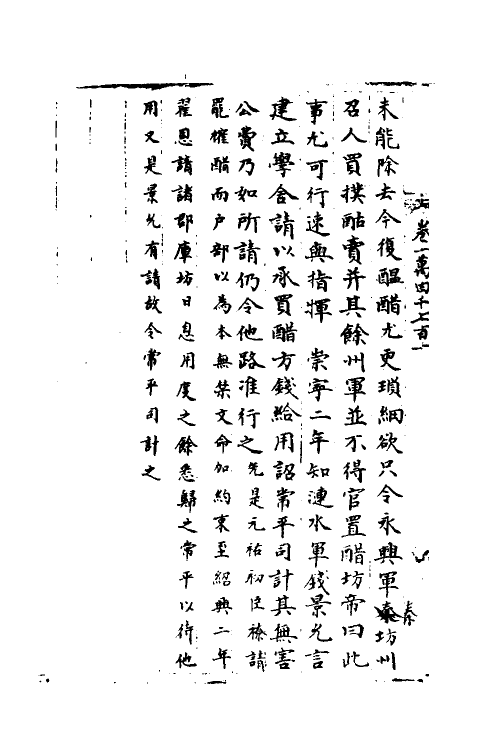 卷一萬四千七百一
未能除去今復醖醋尤更瑣細欲只令永興軍秦坊州
秦
召人買撲酤賣并其餘州軍並不得官置醋坊帝曰此
事尤可行速與指揮　崇寧二年知漣水軍錢景允言
建立學舍請以承買醋方錢給用詔常平司計其無害
公費乃如所請仍令他路准行之先是元祐初臣祿請
罷榷醋而戶部以為本無禁文命加約束至紹興二年
翟思請諸郡庫坊日息用度之餘悉歸之常平以待他
用又是景允有請故令常平司計之